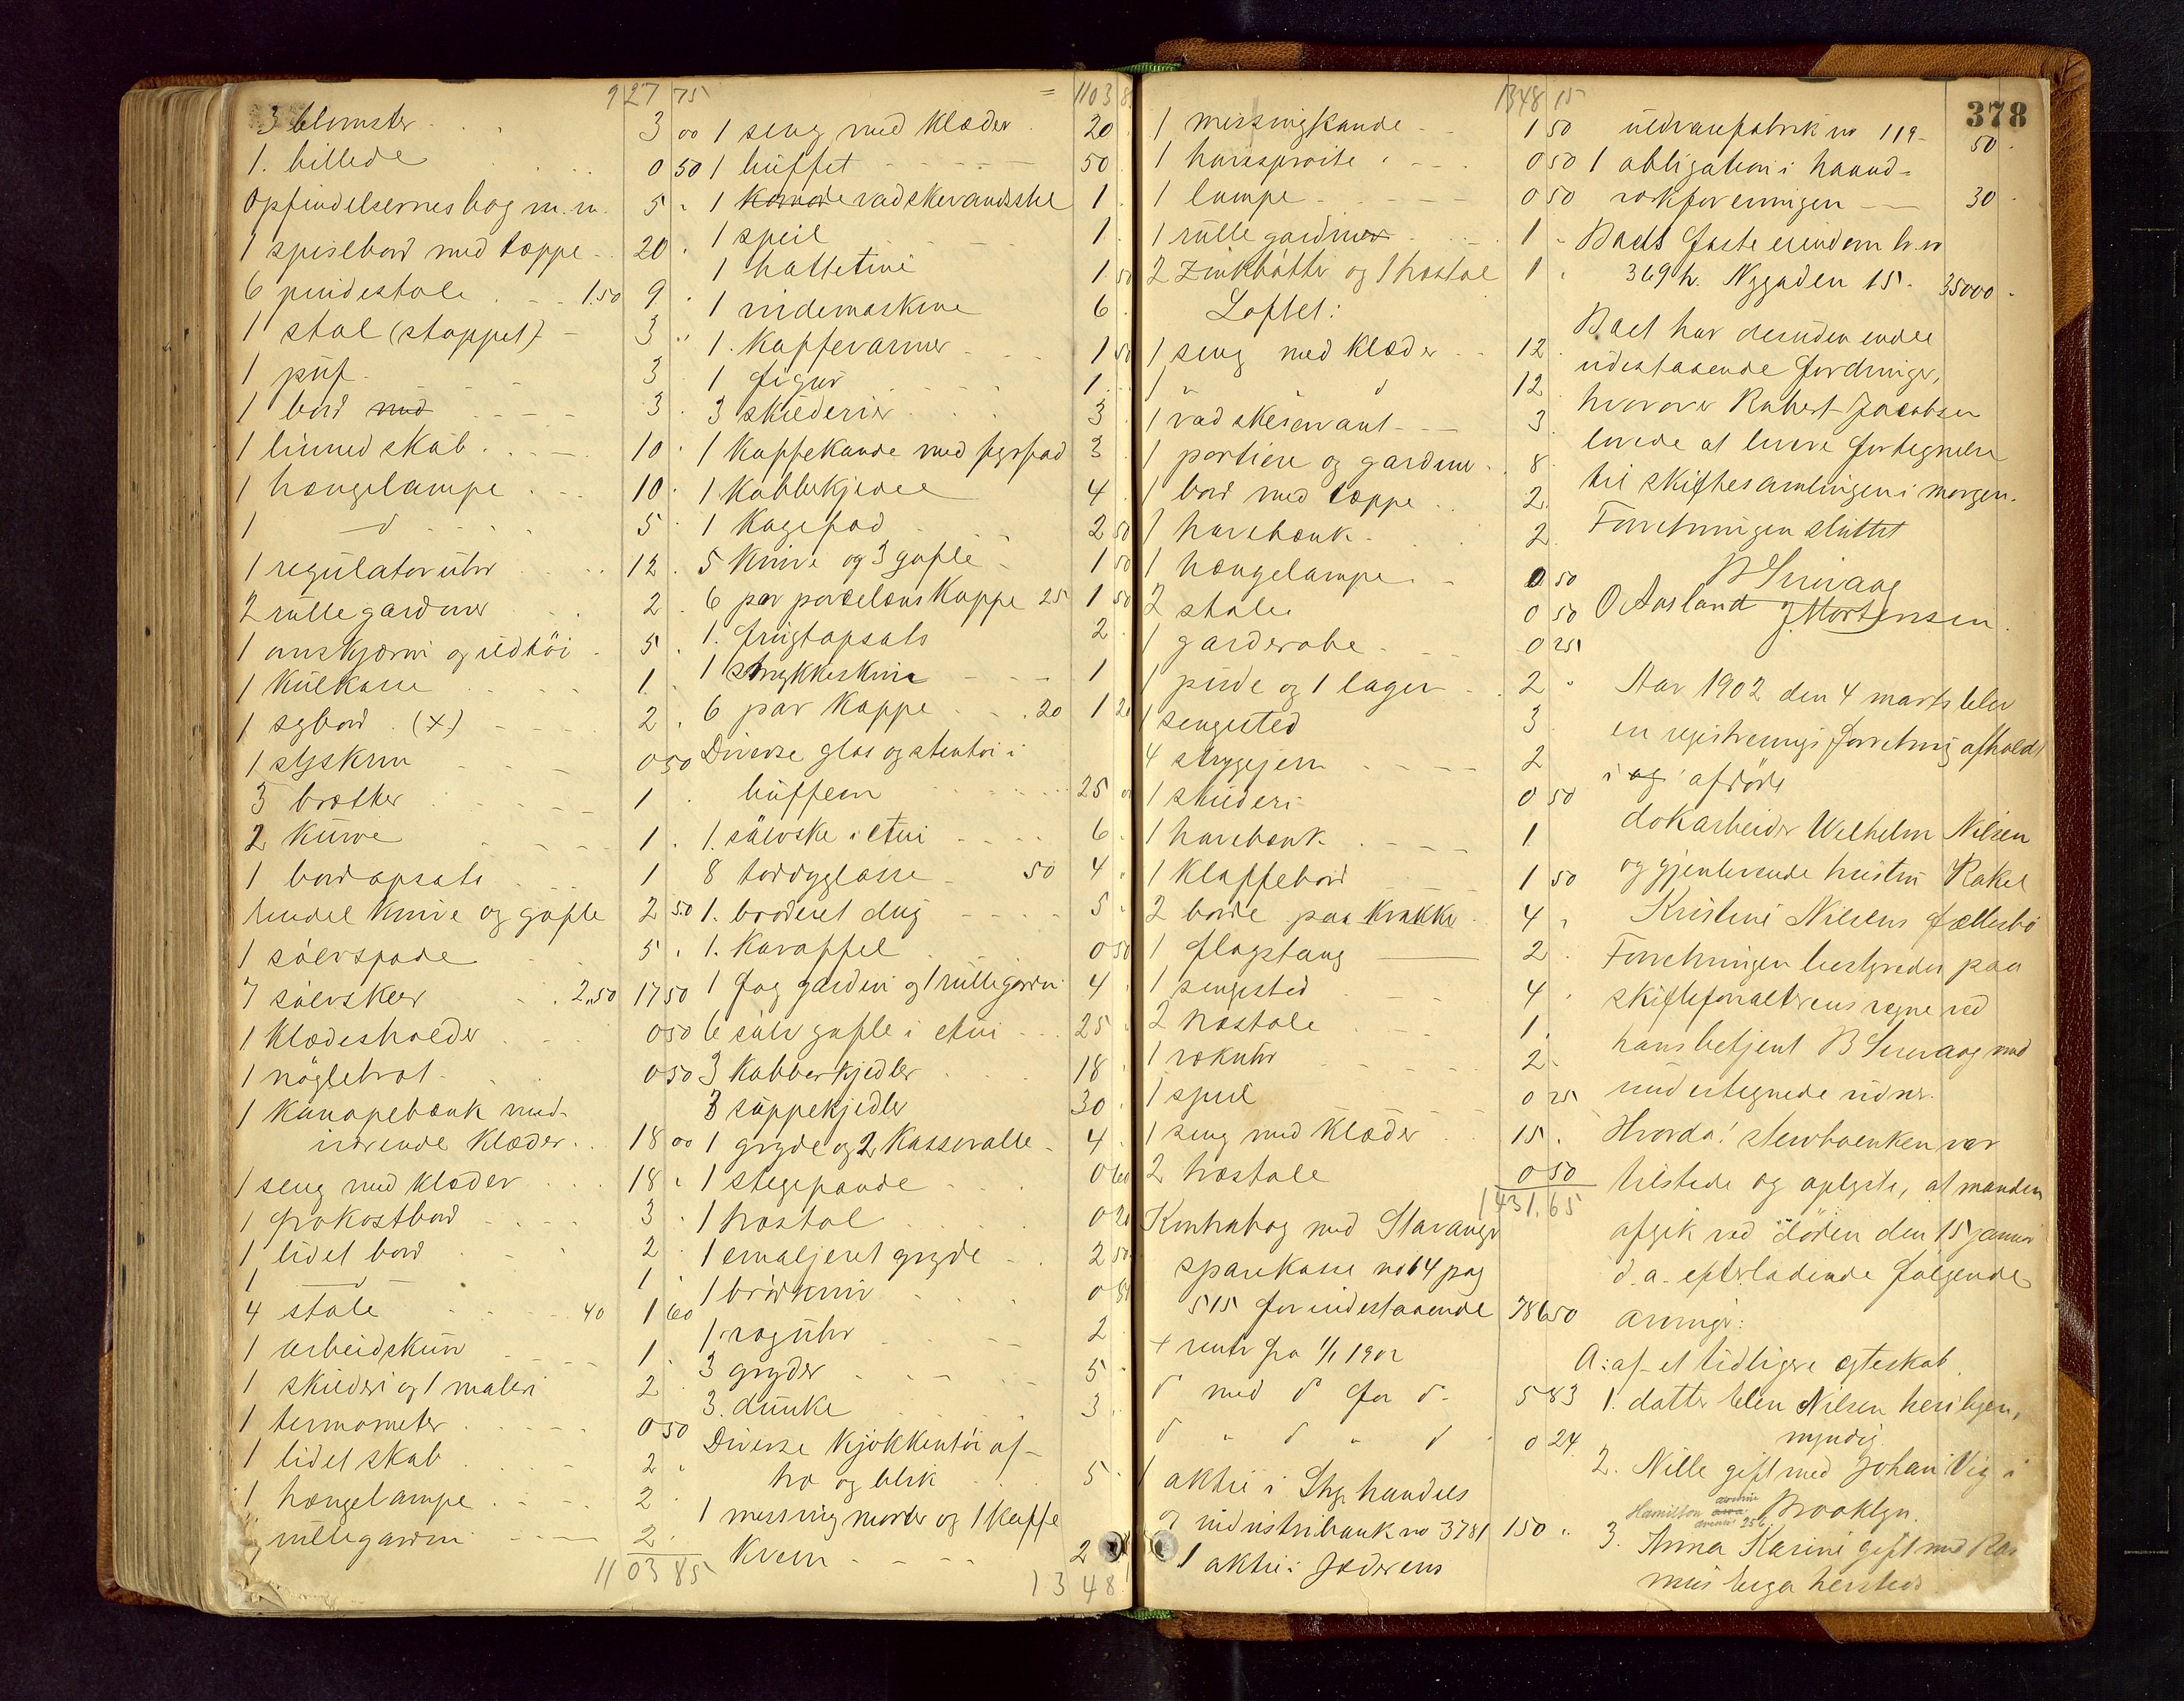 927 75
3 blomster 3 00
1. billede 0 50
Opfindelsernes bog m.m. 5
1 spisebord med tæppe 20
6 pindestole 1.50 9
1 stol (stoppet) 3
1 puf 3
1 bord med 3
1 linned skab 10
1 hængelampe 10
1 d 5
1 regulator uhr 12
2 rullegardiner 2
1 kulkasse 1
1 sybord (+) 2
1 syskrin 0 50
3 bretter 1
2 kurve 1
1 bordopsats 1
endel knive og gafle 2 50
1 sölvspade 5
7 sölvskeer 2.50 17 50
1 klædesholder 0 50
1 nöglebret 0 50
1 kanapebænk med
iværende klæder 18 00
1 seng med klæder 18
1 frokostbord 3
1 lidet bord 2
1 d 1
4 stole 40 1 60
1 arbeidskurv 1
1 skilderi og 1 maleri 2
1 termometer 0 50
1 lidet skab 2
1 hængelampe 2
2 rullegardin 2
1103 85
1103 8
1 seng med klæder 20
1 buffet 50
1 komode vadskevandsstel 1
1 speil 1
1 hattetine 1 50
1 vridemaskine 6
1. kaffevarmer 1 50
1 figur 1
3 skilderier 3
1 kaffekande med fyrfad 3
1 kobberkjedel 4
1 kagefad 2 50
5 knive og 3 gafle 1 50
6 par porcelænskoppe 25 1 50
1. frugtopsats 2
1 strykkeskive 1
6 par koppe 20 1 20
Diverse glas og stentöi i
buffeen 25
1. sölvske i etui 6
8 toddyglasse 50 4
1. broderet dug 5
1. karaffel 0 50
1 fag gardin og 1 rullegardin 4
6 sölv gafle i etui 25
3 kobberkjedler 18
3 suppekjedler 30
1 gryde og 2 kasserolle 4
1 stegepande 0 60
1 træstol 0 20
1 emaljeret gryde 2 50
1 brödkniv 0
1 væguhr 2
3 gryder 5
3. dunke 3
Diverse kjökkentöi af
træ og blik 5
1 messingmorter og 1 kaffe
kvern 2
1348
1348 15
1 messingkande 1 50
1 havesproite 0 50
1 lampe 0 50
1 rullegardiner 1
2 Zinkbötter og 1 træstol 1
Loftet:
1 seng med klæder 12
1 " d 12
1 vadskeservant 3
1 portiere og gardiner 8
1 bord med tæppe 2
1 havebænk 2
1 hængelampe 0 50
2 stole 0 50
1 garderobe 0 25
1 pude og 1 lagen 2
1 sengested 3
4 strygejern 2
1 skilderi 0 50
1 havebænk 1
1 klaffebord 1 50
2 borde paa krakke 4
1 flagstang 2
1 sengested 4
2 træstole 1
1 vækuhr 2
1 speil 0 25
1 seng med klæder 15
2 træstole 0 50
1431.65
Kontrabog med Stavanger
sparekasse no 64 pag
515 for indestaaende 786 50
+ renter fra 1/1 1902
d med d for d 5 83
d " d " d 0 24
1 aktie i Stvg. handels
og industribank no 3781 150
1 aktie i Jæderens
378
uldvarefabrik no 119 50
1 obligation i haand-
verkforeningen 30
Boets faste eiendom br.no
369 h. Nygaden 15. 35000
Boet har desuden endel
udestaaende fordringer,
hvorover Robert Jacobsen
lovede at levere fortegnelse
til skiftesamlingen i morgen.
Forretningen sluttet
O Aasland J Mortensen
Aar 1902 den 4 marts blev
en registrerings forretning afholdt
i og afdöde
dokarbeider Wilhelm Nilsen
og gjenlevende hustru Rakel
Kristine Nilsens fællesbo
Forretningen bestyredes paa
skifteforvalterens vegne ved
hans betjent B med
undertegnede vidner.
Hvorda! Stervboenken var
tilstede og oplyste, at manden
afgik ved döden den 15 januar
d.a. efterladende fölgende
arvinger:
A: af et tidligere egteskab
1. datter Elen Nilsen her i byen,
myndig.
2. Nille gift med Johan Vig i
Hamilton avenue 256 Brooklyn.
3. Anna Karine gift med Ras
mus hersteds